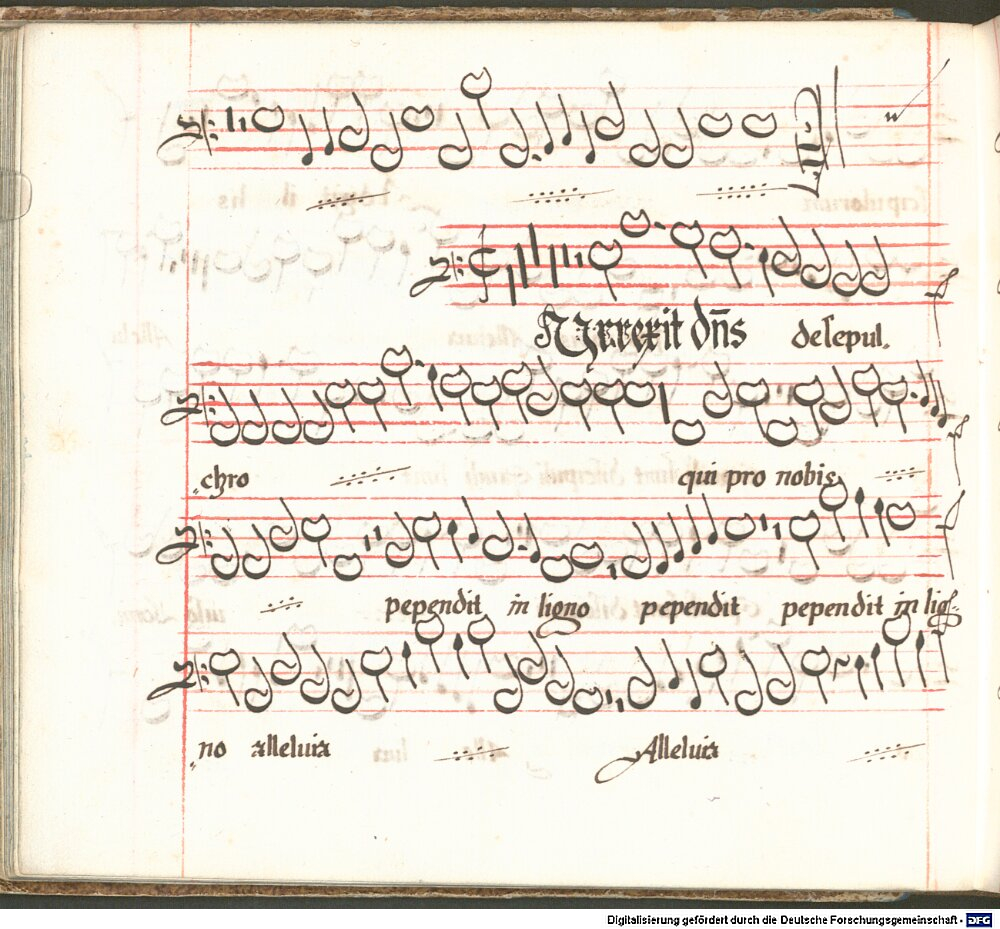 Surrexit dn̄s de sepul.
chro qui pro nobis
pependit in ligno pependit pependit in lig-
no alleluia Alleluia
Digitalisierung gefördert durch die Deutsche Forschungsgemeinschaft - DFG